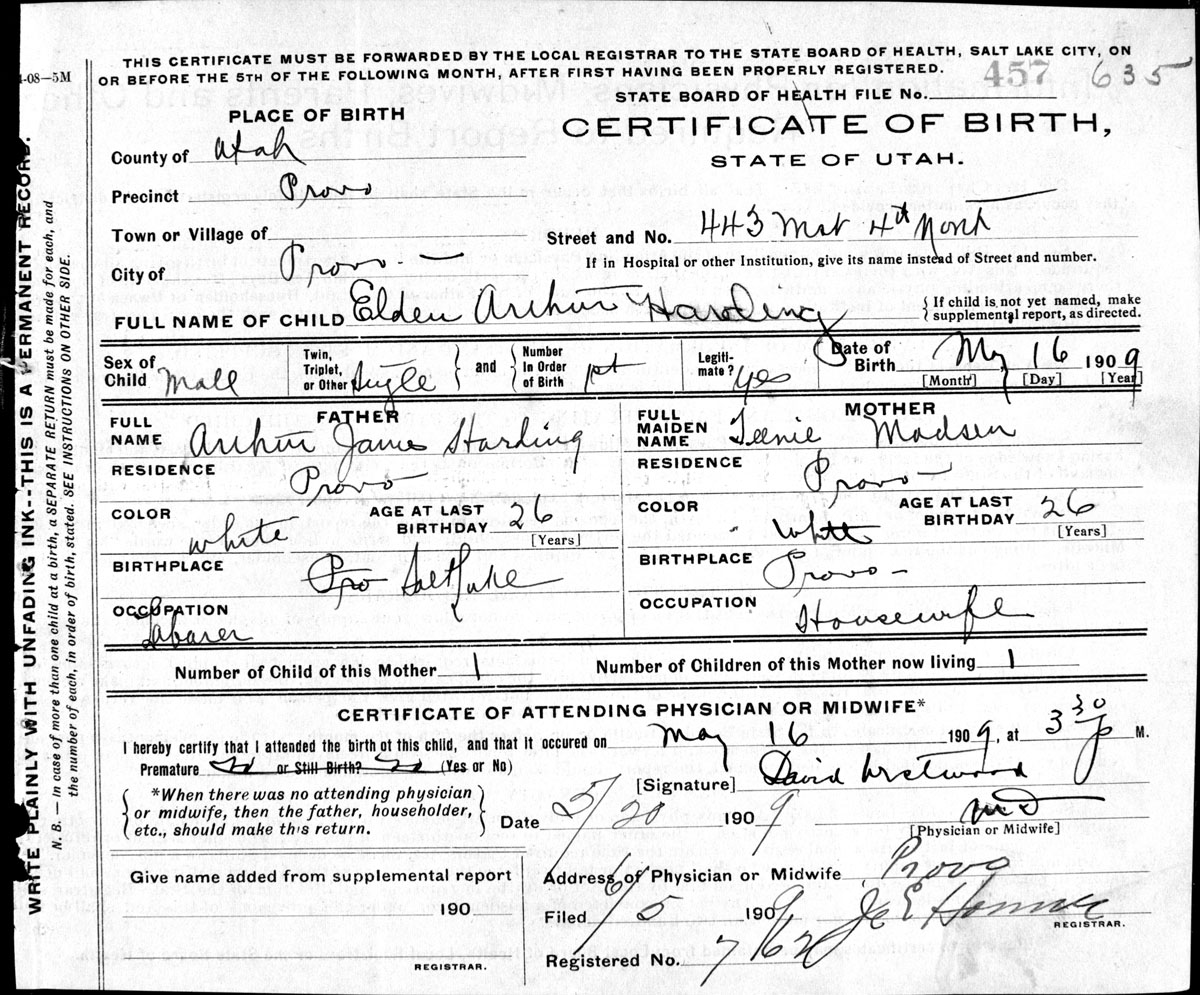 THIS CERTIFICATE MUST BE FORWARDED BY THE LOCAL REGISTRAR TO THE STATE BOARD OF HEALTH, SALT LAKE CITY, ON
-08—5M OR BEFORE THE 5TH OF THE FOLLOWING MONTH, AFTER FIRST HAVING BEEN PROPERLY REGISTERED.
STATE BOARD OF HEALTH FILE No. 457 635
PLACE OF BIRTH
CERTIFICATE OF BIRTH,
STATE OF UTAH.
County of Utah
Precinct Provo
Town or Village of
Street and No. 443 4th North
City of Provo
If in Hospital or other Institution, give its name instead of Street and number.
FULL NAME OF CHILD Elden Arthur Harding
{If child is not yet named, make
supplemental report, as directed.
Sex of Child Male
Twin, Triplet, or Other Single } and { Number In Order of Birth
Legiti-mate? Yes
Date of Birth May 16 1909
[Month] [Day] [Year]
FATHER
FULL NAME Arthur James Harding
RESIDENCE Provo
COLOR white
AGE AT LAST BIRTHDAY 26 [Years]
BIRTHPLACE Pro Salt Lake
OCCUPATION Labarer
MOTHER
FULL MAIDEN NAME Teenie Madsen
RESIDENCE Provo
COLOR White
AGE AT LAST BIRTHDAY 26 [Years]
BIRTHPLACE Provo
OCCUPATION Housewife
Number of Child of this Mother 1 Number of Children of this Mother now living 1
CERTIFICATE OF ATTENDING PHYSICIAN OR MIDWIFE*
I hereby certify that I attended the birth ot this child, and that it occured on May 16 1909, at 3 30 P M.
Premature or Still Birth? (Yes or No)
[Signature] David Westwood
*When there was no attending physician
or midwife, then the father, householder,
etc., should make this return.
Date 5/20 1909 MD
[Physician or Midwife]
Give name added from supplemental report
190
REGISTRAR.
Address of Physician or Midwife Provo
Filed 6/5 1909
REGISTRAR.
Registered No.
WRITE PLAINLY WITH UNFADING INK--THIS IS A PERMANENT RECORD.
N. B.—In case of more than one child at a birth, a SEPARATE RETURN must be made for each, and
the number of each, in order of birth, stated. SEE INSTRUCTIONS ON OTHER SIDE.